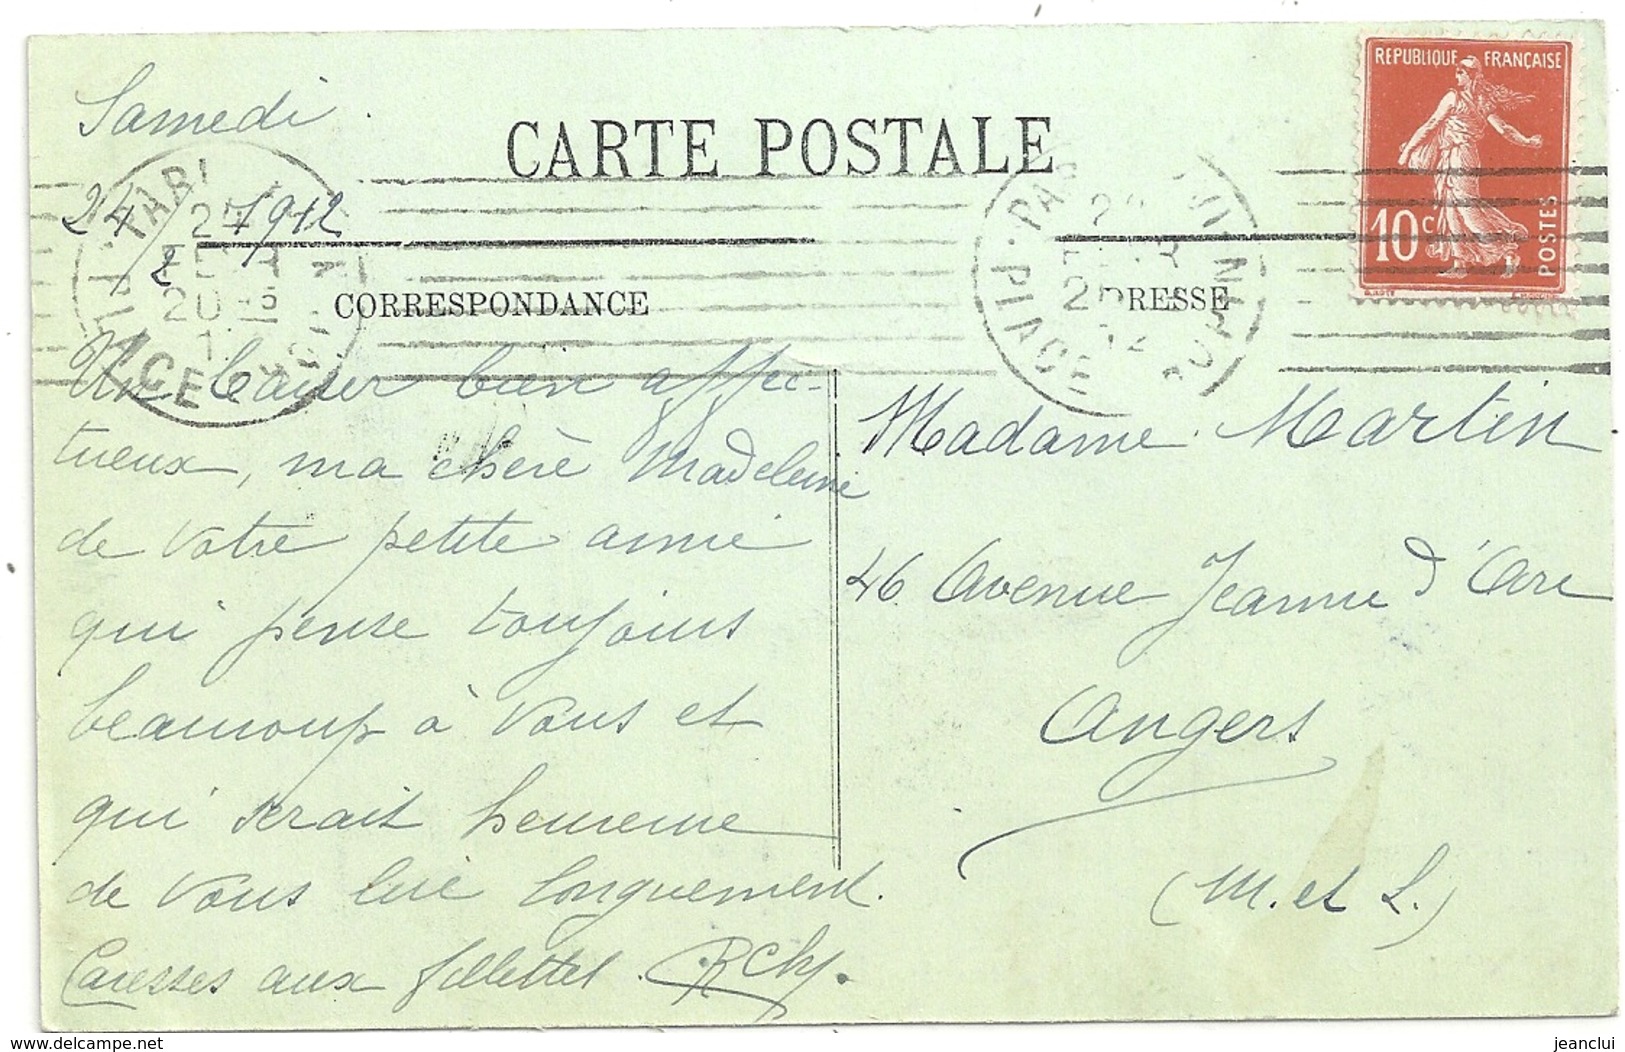 Samedi
24/2 1912
CARTE POSTALE
REPUBLIQUE FRANÇAISE
10 c
POSTES
CORRESPONDANCE
ADRESSE
Un baiser bien affec-
tueux, ma chère Madeleine
de votre petite amie
qui pense toujours
beaucoup à vous et
qui serait heureuse
de vous lire longuement.
Caresses aux fillettes.
Madame Martin
46 Avenue Jeanne d'Arc
Angers
(M. et L.)
jeanclui